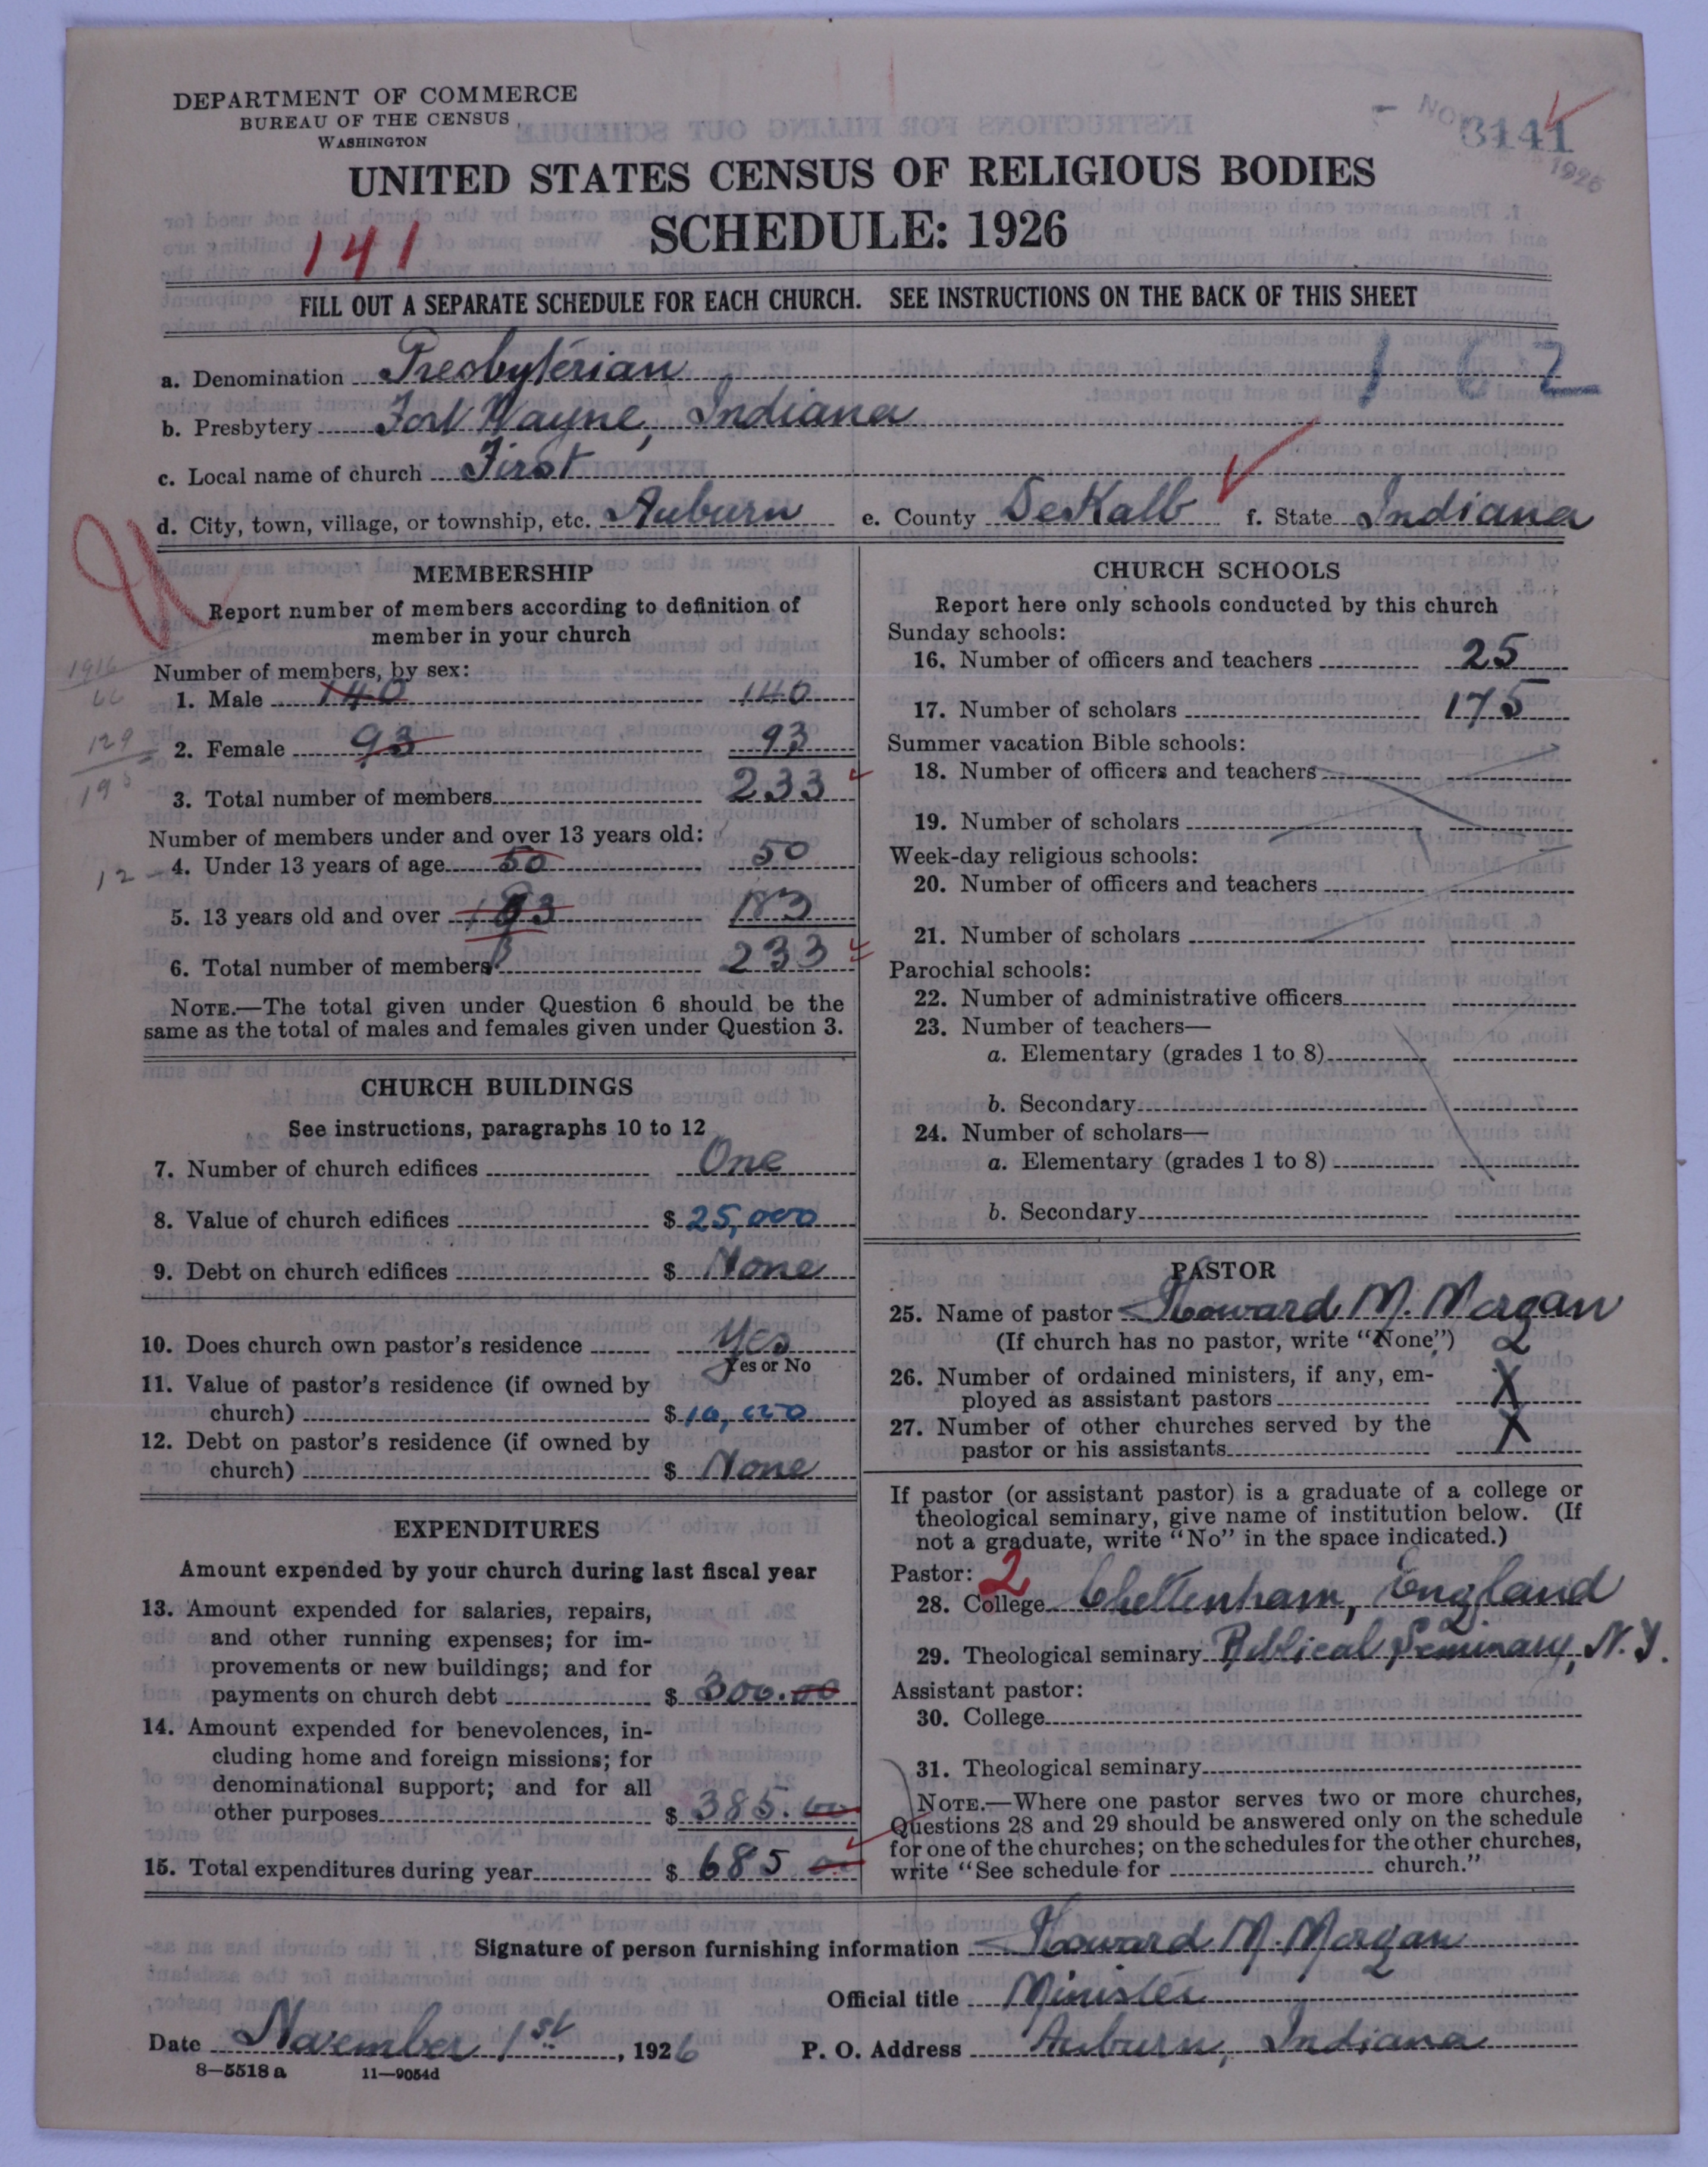 DEPARTMENT OF COMMERCE
BUREAU OF THE CENSUS
WASHINGTON
3141
1926
UNITED STATES CENSUS OF RELIGIOUS BODIES
SCHEDULE: 1926
141
FILL OUT A SEPARATE SCHEDULE FOR EACH CHURCH. SEE INSTRUCTIONS ON THE BACK OF THIS SHEET
a. Denomination Presbyterian 162
b. Presbytery Fort Wayne, Indiana
c. Local name of church First
d. City, town, village, or township, etc. Auburn e. County DeKalb f. State Indiana
MEMBERSHIP
Report number of members according to definition of
member in your church
1916
Number of members, by sex:
1. Male 140 140
66
2. Female 93 93
129
3. Total number of members 233
Number of members under and over 13 years old:
12 4. Under 13 years of age 50 50
5. 13 years old and over 183 183
6. Total number of members 233
NOTE.—The total given under Question 6 should be the
same as the total of males and females given under Question 3.
CHURCH BUILDINGS
See instructions, paragraphs 10 to 12
7. Number of church edifices One
8. Value of church edifices $ 25,000
9. Debt on church edifices $ None
10. Does church own pastor's residence Yes
Yes or No
11. Value of pastor's residence (if owned by
church) $ 10,000
12. Debt on pastor's residence (if owned by
church) $ None
EXPENDITURES
Amount expended by your church during last fiscal year
13. Amount expended for salaries, repairs,
and other running expenses; for im-
provements or new buildings; and for
payments on church debt $ 300.00
14. Amount expended for benevolences, in-
cluding home and foreign missions; for
denominational support; and for all
other purposes $ 385.00
15. Total expenditures during year $ 685 00
CHURCH SCHOOLS
Report here only schools conducted by this church
Sunday schools:
16. Number of officers and teachers 25
17. Number of scholars 175
Summer vacation Bible schools:
18. Number of officers and teachers
19. Number of scholars
Week-day religious schools:
20. Number of officers and teachers
21. Number of scholars
Parochial schools:
22. Number of administrative officers
23. Number of teachers—
a. Elementary (grades 1 to 8)
b. Secondary
24. Number of scholars—
a. Elementary (grades 1 to 8)
b. Secondary
PASTOR
25. Name of pastor Howard M. Morgan
(If church has no pastor, write "None")
26. Number of ordained ministers, if any, em-
ployed as assistant pastors X
27. Number of other churches served by the
pastor or his assistants X
If pastor (or assistant pastor) is a graduate of a college or
theological seminary, give name of institution below. (If
not a graduate, write "No" in the space indicated.)
Pastor: 2
28. College Cheltenham, England
29. Theological seminary Biblical Seminary, N.Y.
Assistant pastor:
30. College
31. Theological seminary
NOTE.—Where one pastor serves two or more churches,
Questions 28 and 29 should be answered only on the schedule
for one of the churches; on the schedules for the other churches,
write "See schedule for church."
Signature of person furnishing information Howard M. Morgan
Official title Minister
Date November 1st, 1926 P. O. Address Auburn, Indiana
8—5518 a 11—9054d